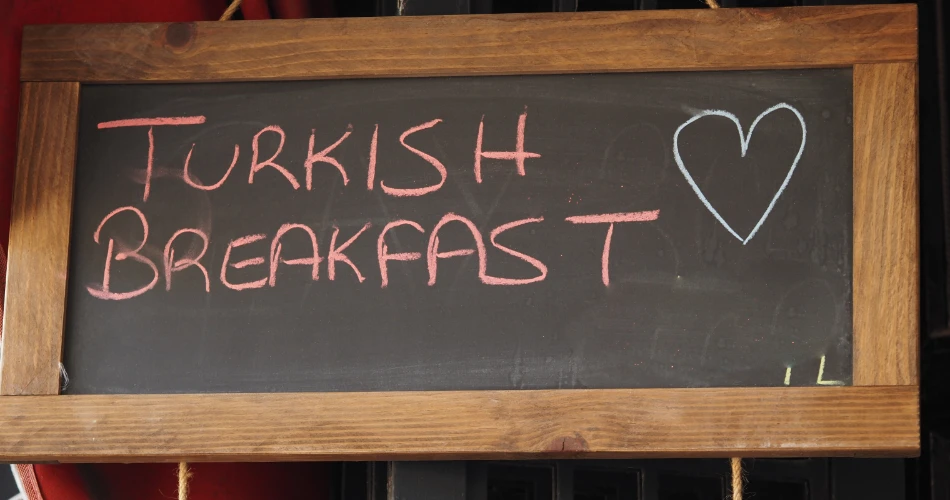 TURKISH
BREAKFAST